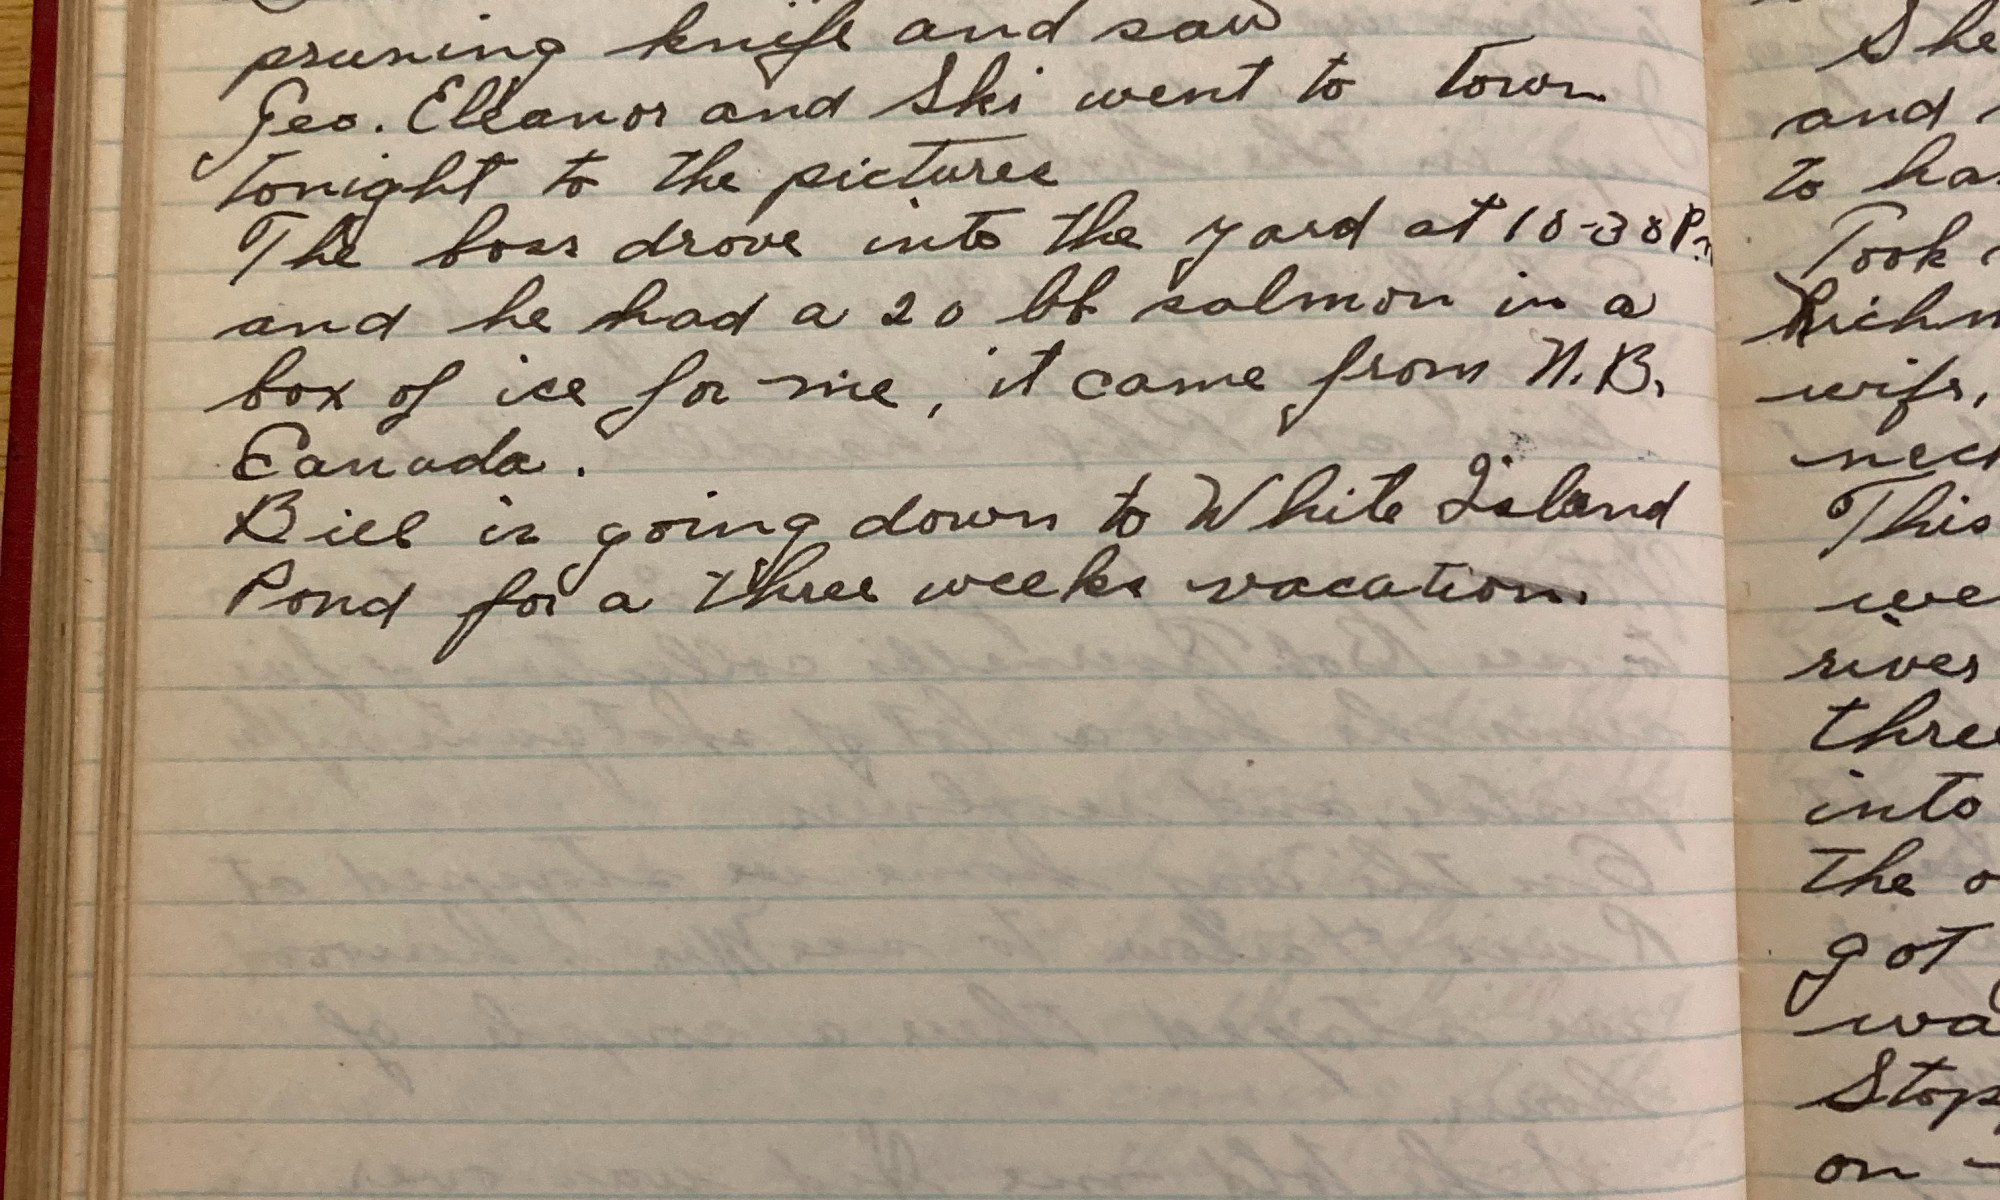 pruning knife and saw
Geo. Eleanor and Ski went to town
tonight to the pictures
The boss drove into the yard at 10-30 P.M
and he had a 20 lb salmon in a
box of ice for me, it came from N.B.
Canada.
Bill is going down to White Island
Pond for a three weeks vacation.
She
and
to ha
Took
Richm
wife,
nec
This
we
river
three
into
the o
got
wa
Stop
on